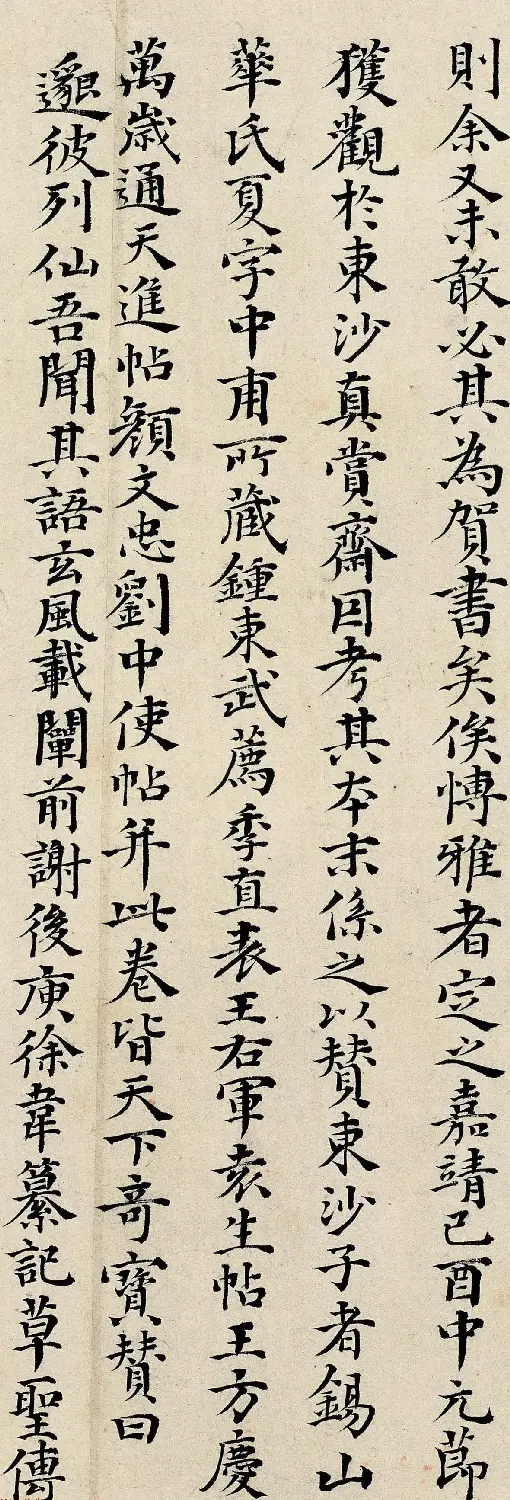 則余又未敢必其為賀書矣俟博雅者定之嘉靖己酉中元節
獲觀於東沙真賞齋因考其本末係之以賛東沙子者錫山
華氏夏字中甫所藏鍾東武薦季直表王右軍袁生帖王方慶
萬歲通天進帖顏文忠劉中使帖并此卷皆天下奇寶賛曰
邈彼列仙吾聞其語玄風載闡前謝後庾徐韋纂記草聖傳